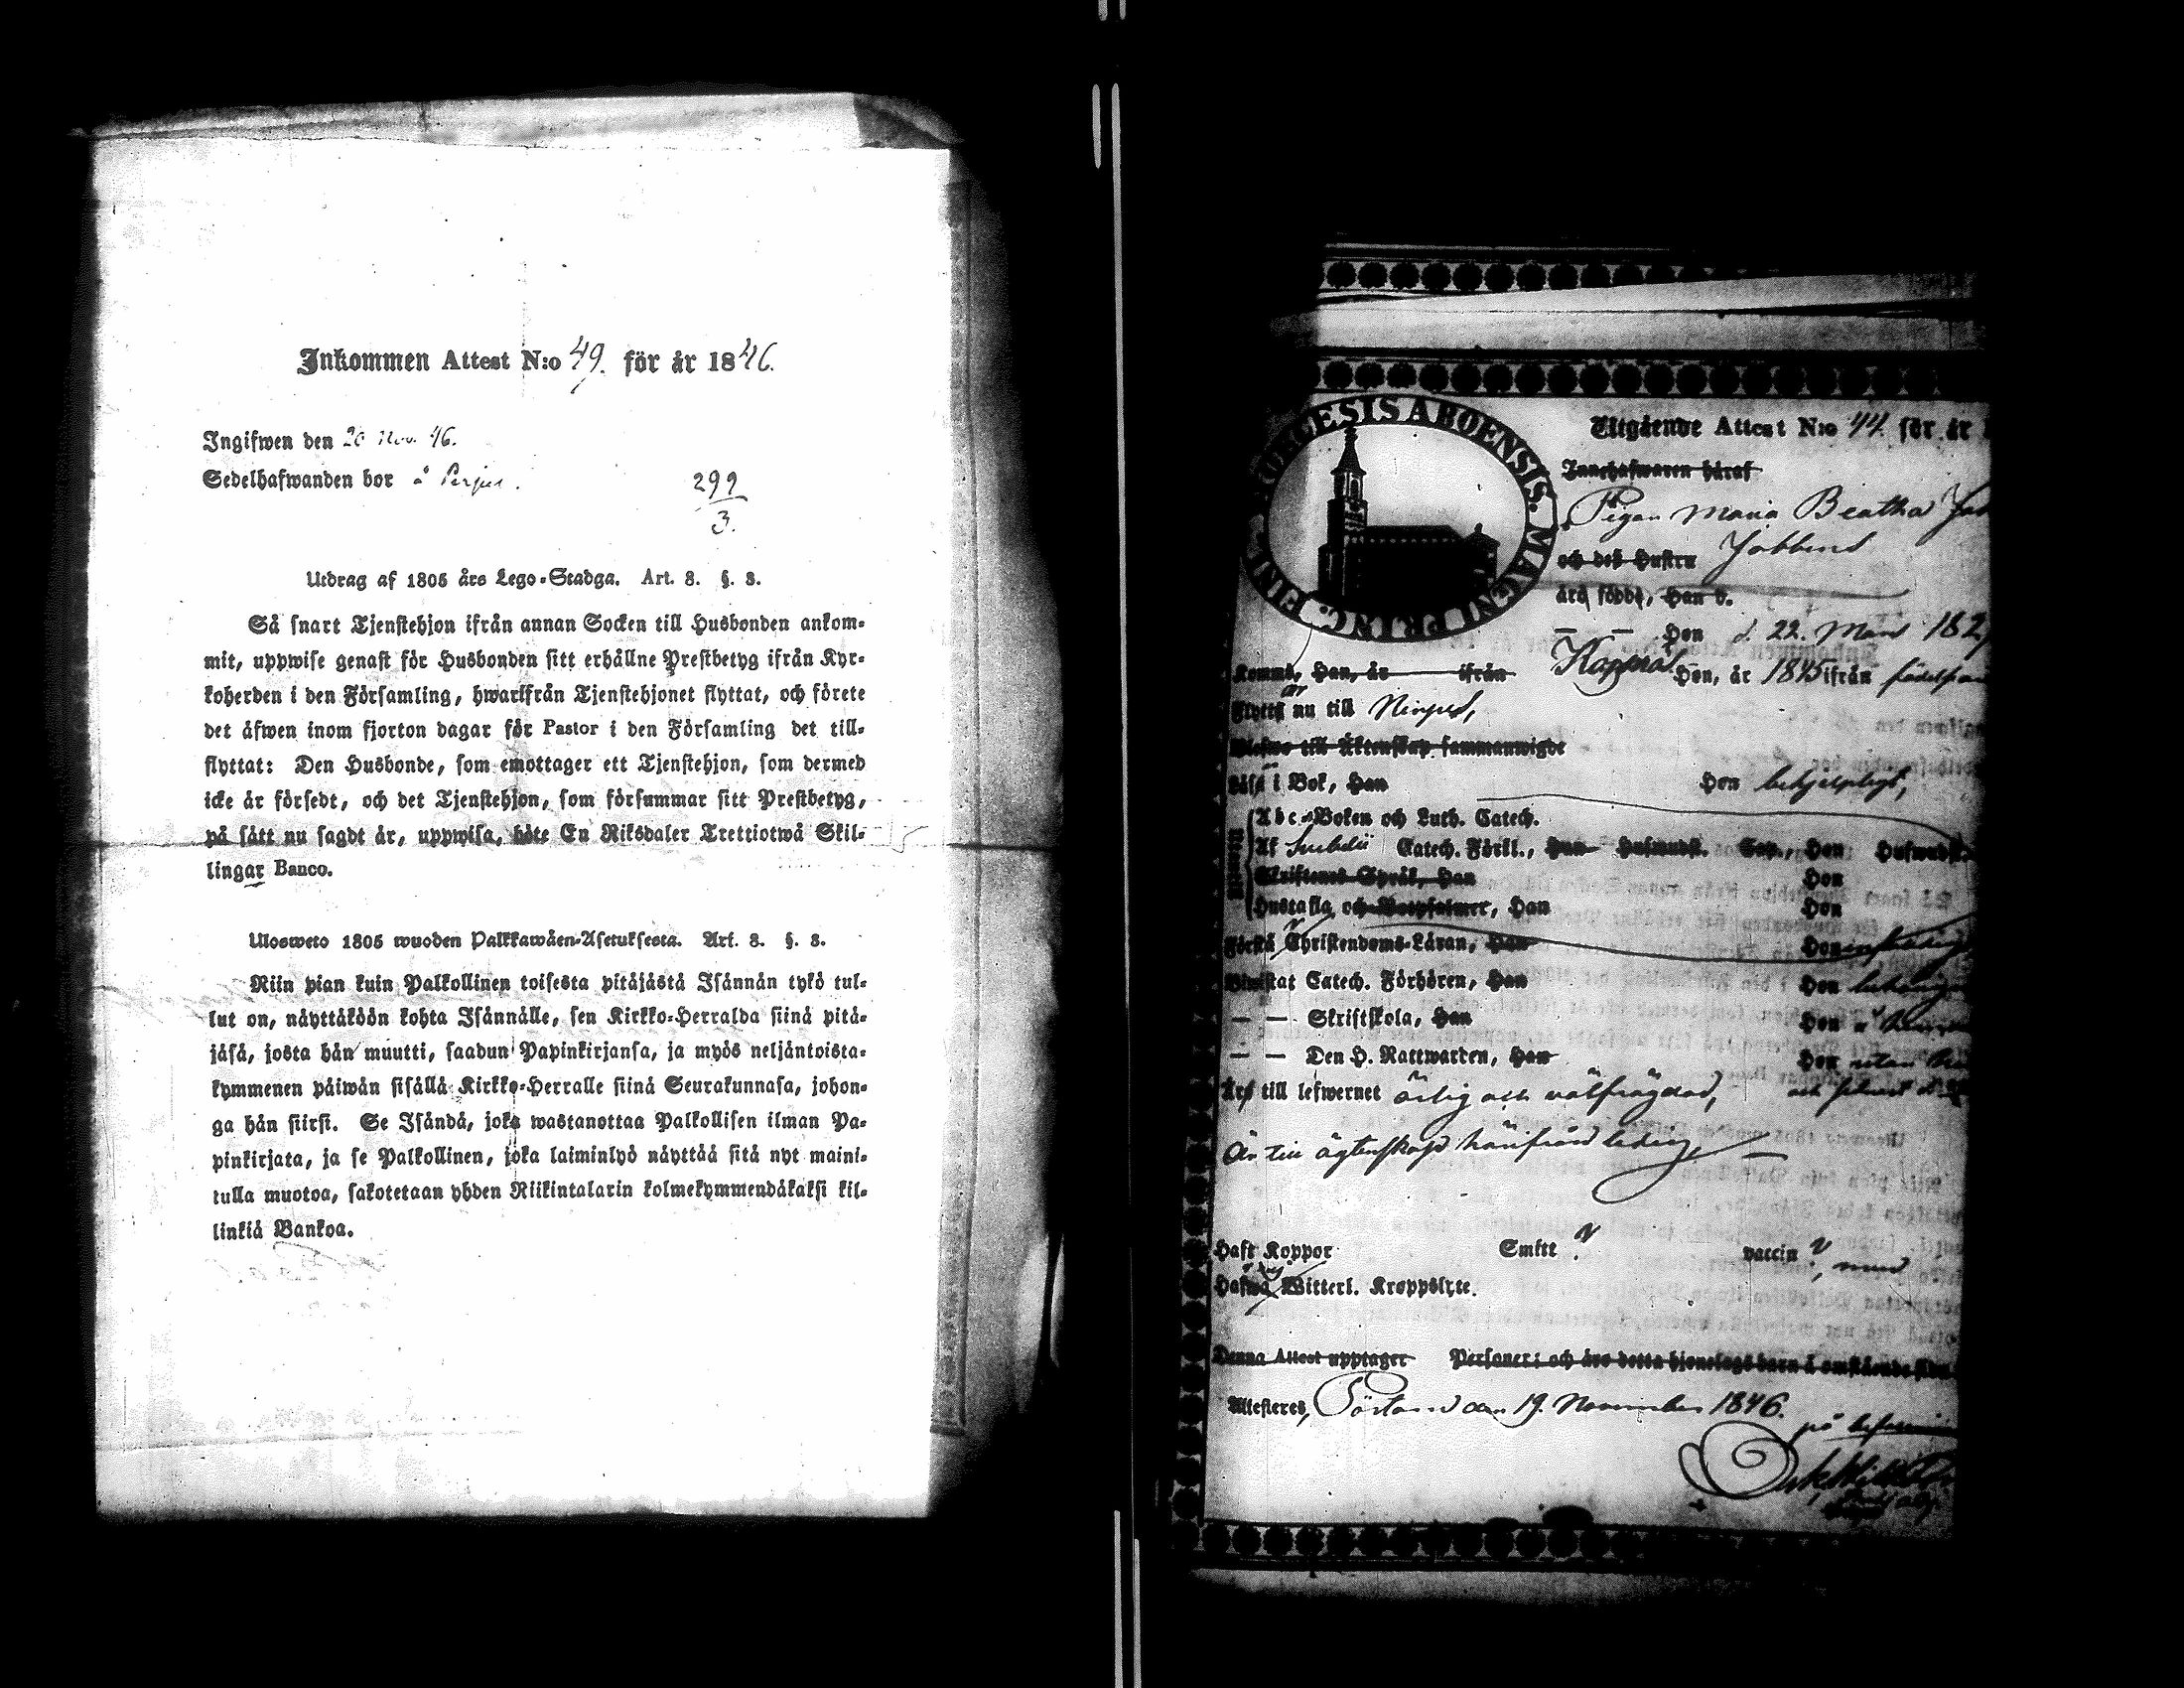 Inkommen Attest N:o 49. för år 1846.
Ingifwen den 20 Nov. 46.
Sedelhafwanden bor å
299
3.
Utdrag af 1805 års Lego-Stadga. Art. 3. §. 3.
Så snart Tjenstehjon ifrån annan Socken till Husbonden ankom-
mit, uppwise genast för Husbonden sitt erhållne Prestbetyg ifrån Kyr-
koherden i den Församling, hwarifrån Tjenstehjonet flyttat, och förete
det äfwen inom fjorton dagar för Pastor i den Församling det till-
flyttat: Den Husbonde, som emottager ett Tjenstehjon, som dermed
icke är försedt, och det Tjenstehjon, som försummar sitt Prestbetyg,
på sätt nu sagdt är, uppwisa, böte En Riksdaler Trettiotwå Skil-
lingar Banco.
Ulosweto 1805 wuoden Palkkawäen-Asetuksesta. Art. 3. §. 3.
Niin pian kuin Palkollinen toisesta pitäjästä Isännän tykö tul-
lut on, näyttäköön kohta Isännälle, sen Kirkko-Herralda siinä pitä-
jäsä, josta hän muutti, saadun Papinkirjansa, ja myös neljäntoista-
kymmenen päiwän sisällä Kirkko-Herralle siinä Seurakunnasa, johon-
ga hän siirsi. Se Isändä, joka wastanottaa Palkollisen ilman Pa-
pinkirjata, ja se Palkollinen, joka laiminlyö näyttää sitä nyt maini-
tulla muotoa, sakotetaan yhden Riikintalarin kolmekymmendäkaksi kil-
linkiä Bankoa.
ABOENSIS. MAGNI PRINC.
Utgående Attest N:o 44. för år
Innehafwaren häraf
Pigan Maria Beatha
och deß Hustru
äro födde, Han d.
— — Hon d. 22. Mars 182
Komme, Han, år ifrån Hon, år 1845 ifrån
Flytta nu till
till Äktenskap sammanwigde
Läsa i Bok, Han Hon behjelpligt,
Abc-Boken och Luth. Catech.
Af Catech. Förkl., Han Hufwudst. Hon Hufwudst.
Skriftenes Språk, Han Hon
Hustafla och Botpsalmer, Han Hon
Förstå Christendoms-Läran, Han Hon
Biwistat Catech. Förhören, Han Hon
— — Skriftskola, Han Hon
— — Den H. Nattwarden, Han Hon utan
Äro till lefwernet ärlig och välfrägdad,
Är till ägtenskap härifrån ledig
Haft Koppor Smitt vaccin
Hafwa Witterl. Kroppslyte.
Denna Attest upptager Personer; och äro detta hjonelags barn å omstående sida.
Attesteres, den 19. November 1846.
på